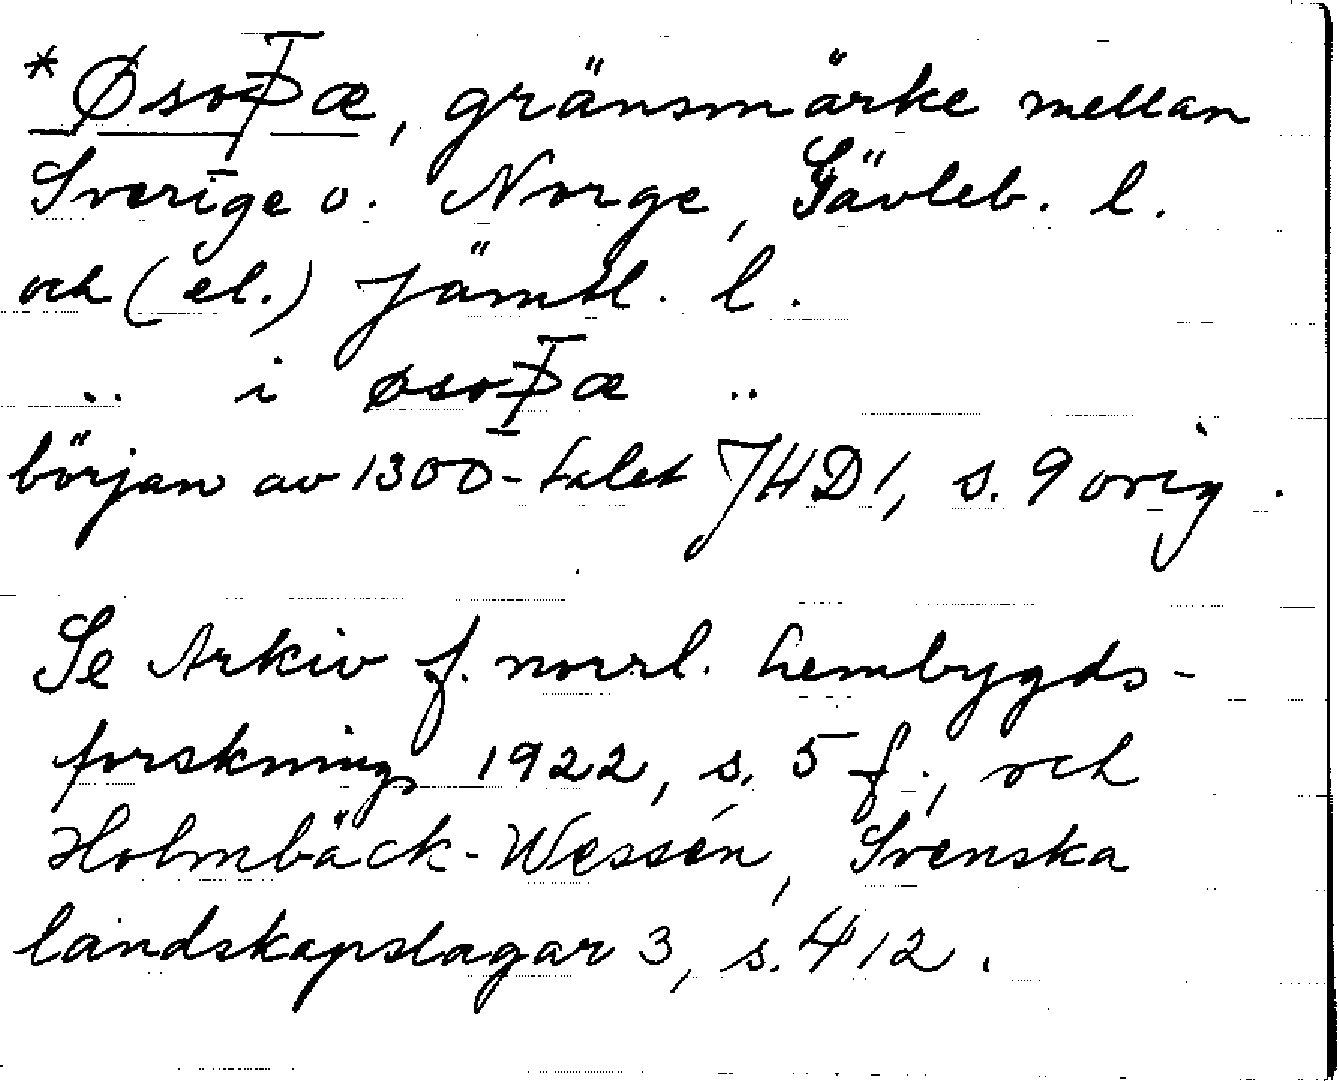 *Øsoꝥæ, gränsmärke mellan
Sverige o. Norge, Gävleb. l.
och (el.) Jämtl. l.
.. i øsoꝥæ ..
början av 1300-talet JHD 1, s. 9 orig.
Se Arkiv f. norrl. hembygds-
forskning 1922, s. 5 f., och
Holmbäck-Wessén, Svenska
landskapslagar 3, s. 412.